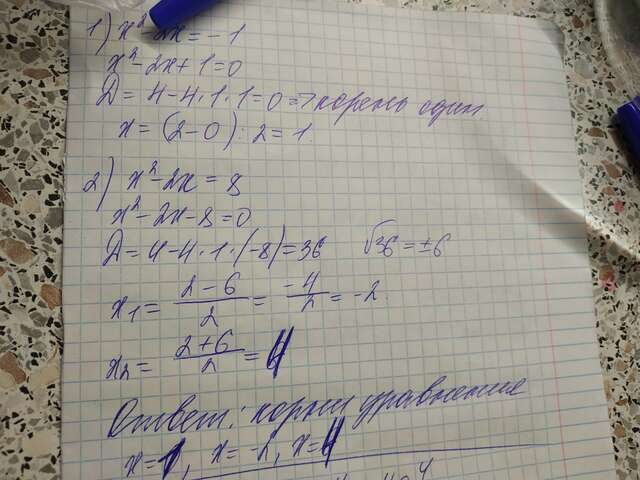 1) x²-2x=-1
x²-2x+1=0
D=4-4·1·1=0=>корень один
x=(2-0):2=1.
2) x²-2x=8
x²-2x-8=0
D=4-4·1·(-8)=36 √36=±6
x₁=(2-6)/2=-4/2=-2.
x₂=(2+6)/2=4
Ответ: корни уравнения
x=1, x=-2, x=4